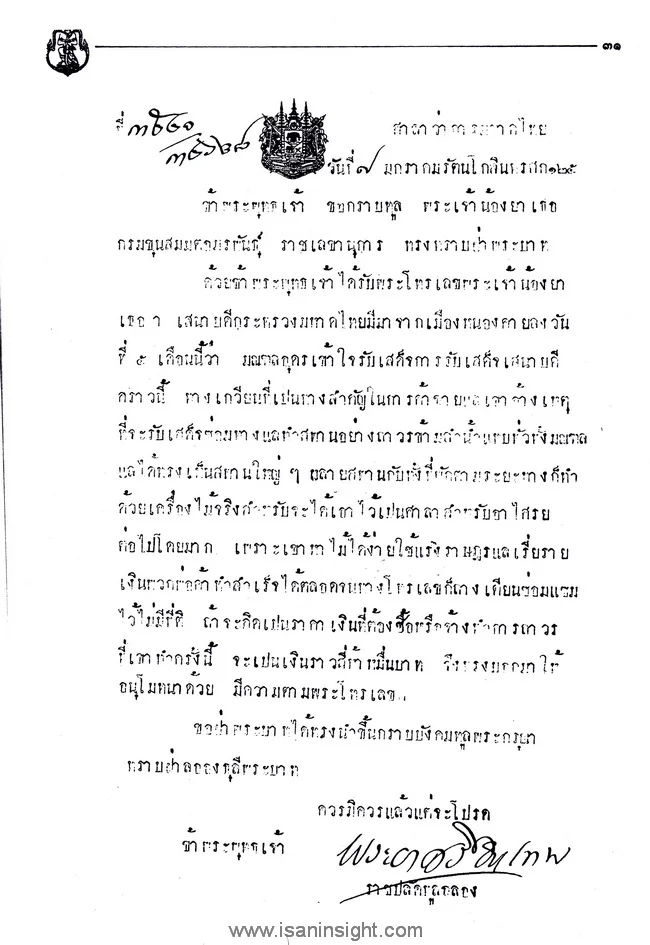 ๓๑
ที่
ศาลาว่าการมหาดไทย
วันที่ ๗ มกราคมรัตนโกสินทรศก๑๒๕
ข้าพระพุทธเจ้า ขอกราบทูล พระเจ้าน้องยาเธอ
กรมขุนสมมตอมรพันธุ์ ราชเลขานุการ ทรงทราบฝ่าพระบาท
ด้วยข้าพระพุทธเจ้าได้รับพระโทรเลขพระเจ้าน้องยา
เธอ ๆ เสนาบดีกระทรวงมหาดไทยมีมาจากเมืองหนองคายลงวัน
ที่ ๕ เดือนนี้ว่า มณฑลอุดรเข้าใจรับเสด็จการรับเสด็จเสนาบดี
คราวนี้ ทางเกวียนที่เปนทางสำคัญในการค้าขาย
ที่จะรับเสด็จซ่อมทางแลทำสพานอย่างถาวรข้ามลำน้ำแทบทั่วทั้งมณฑล
แลได้ทรงเห็นสพานใหญ่ ๆ หลายสพานกับทั้งที่พักตามระยะทางก็ทำ
ด้วยเครื่องไม้จริงสำหรับจะได้เอาไว้เปนศาลาสำหรับอาไศรย
ต่อไปโดยมาก เพราะเขาหาไม้ได้ง่ายใช้แรงราษฎรแลเรี่ยราย
เงินพวกพ่อค้าทำสำเร็จได้ตลอดจนทางโทรเลขก็ถางเตียนซ่อมแซม
ไว้ไม่มีที่ติ ถ้าจะคิดเปนราคาเงินที่ต้องซื้อหรือจ้างทำการถาวร
ที่เขาทำครั้งนี้ จะเปนเงินราวสี่ห้าหมื่นบาท จึงทรงบอกมาให้
อนุโมทนาด้วย มีความตามพระโทรเลข
ขอฝ่าพระบาทได้ทรงนำขึ้นกราบบังคมทูลพระกรุณา
ทราบฝ่าลอองธุลีพระบาท
ควรมิควรแล้วแต่จะโปรด
ข้าพระพุทธเจ้า
ราชปลัดทูลฉลอง
www.isaninsight.com